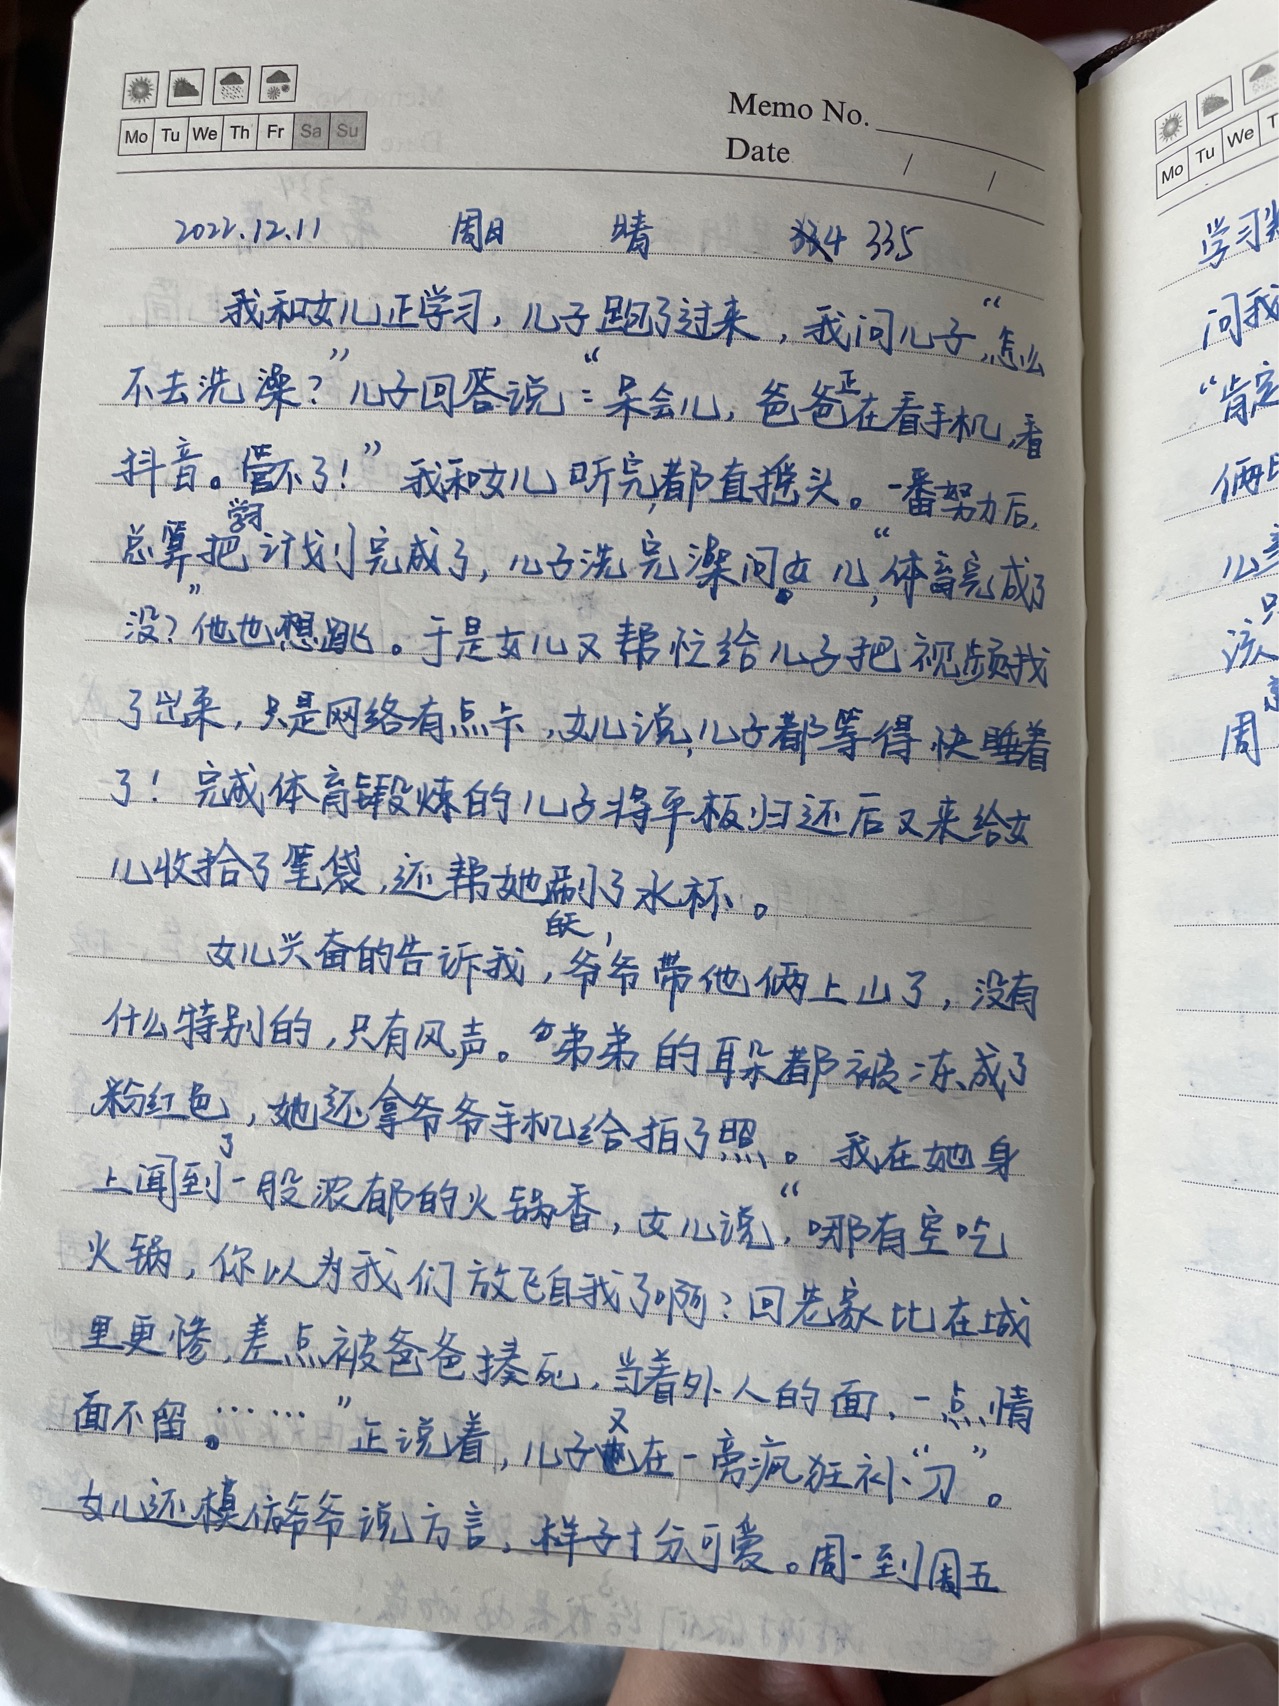 Mo Tu We Th Fr Sa Su
Memo No.
Date / /
2022.12.11 周日 晴 335
我和女儿正学习，儿子跑了过来，我问儿子“怎么
不去洗澡？”儿子回答说：“呆会儿，爸爸正在看手机，看
抖音。管不了！”我和女儿听完，都直摇头。一番努力后，
总算把学习计划完成了，儿子洗完澡问女儿，“体育完成了
没？”他也想跳。于是女儿又帮忙给儿子把视频找
了出来，只是网络有点卡，女儿说，儿子都等得快睡着
了！完成体育锻炼的儿子将平板归还后又来给女
儿收拾了笔袋，还帮她刷了水杯。
女儿兴奋的告诉我，白天，爷爷带他俩上山了，没有
什么特别的，只有风声。“弟弟的耳朵都被冻成了
粉红色，她还拿爷爷手机给拍了照。我在她身
上闻到了一股浓郁的火锅香，女儿说，“哪有空吃
火锅，你以为我们放飞自我了啊？回老家比在城
里更惨，差点被爸爸揍死，当着外人的面，一点情
面不留。……”正说着，儿子又在一旁疯狂补“刀”。
女儿还模仿爷爷说方言，样子十分可爱。周一到周五
Mo Tu We T
学习
问我
“肯定
俩
儿
该
周